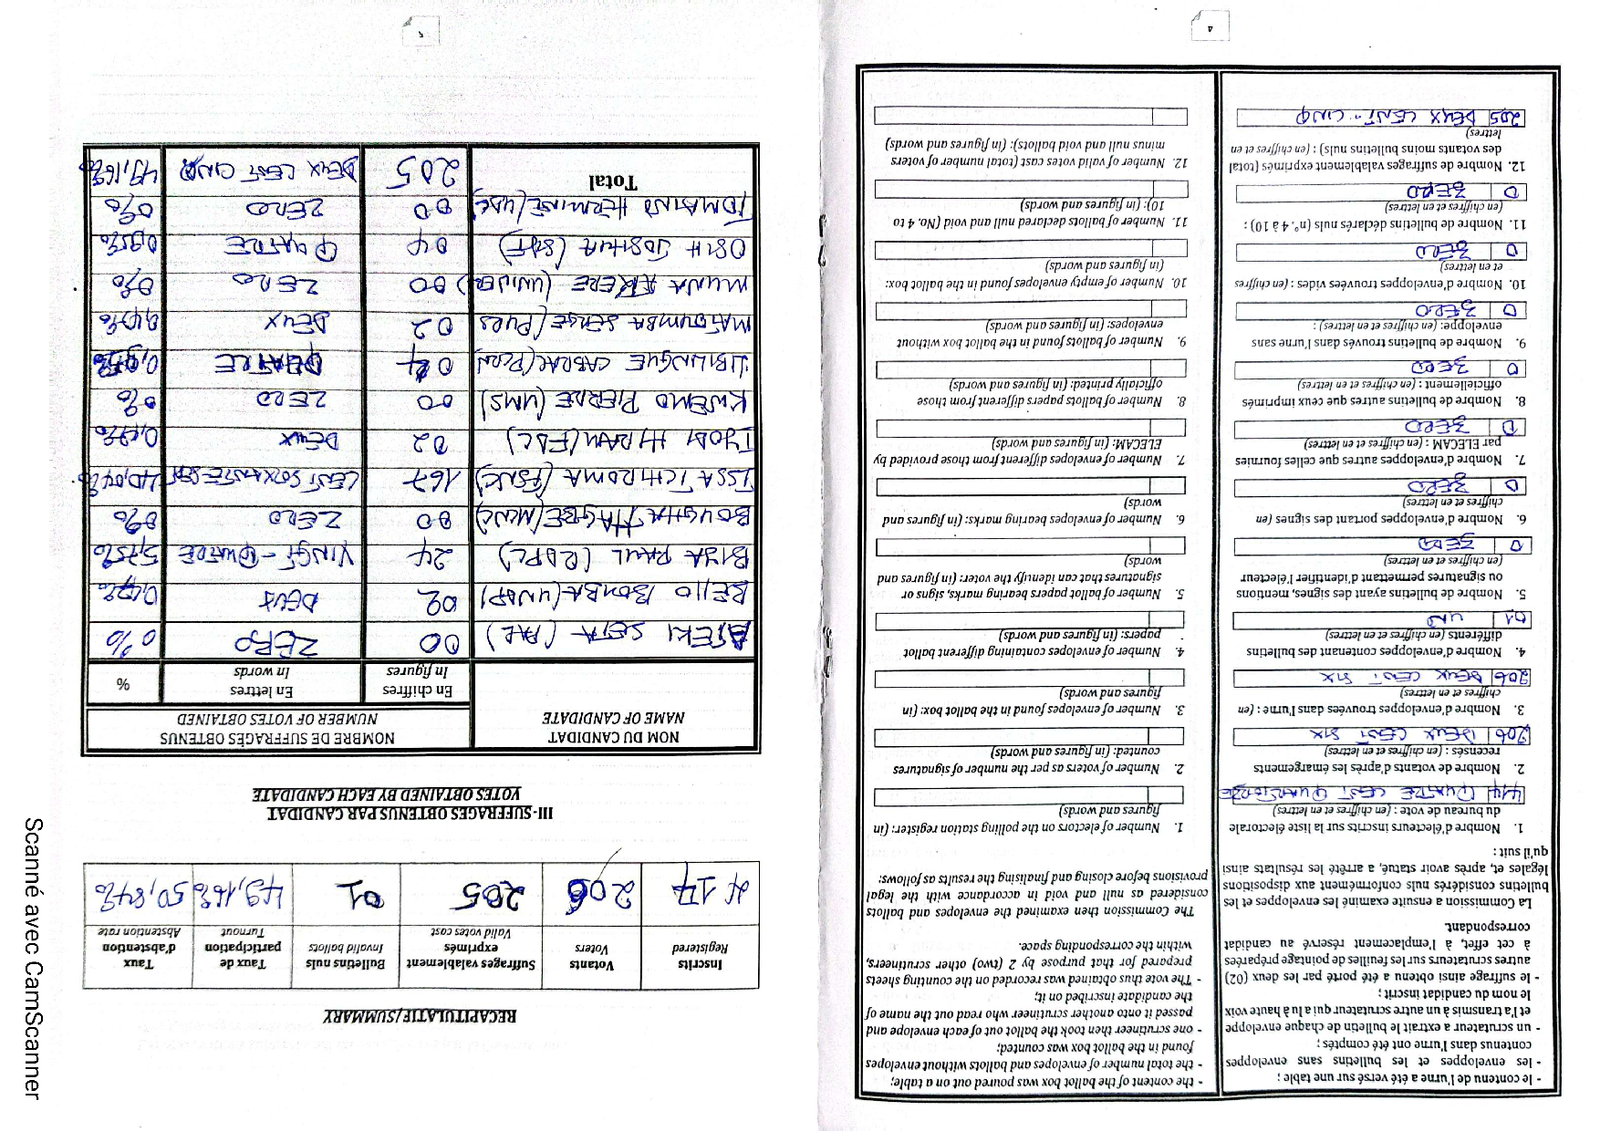 4
- le contenu de l'urne a été versé sur une table ;
- les enveloppes et les bulletins sans enveloppes
contenus dans l'urne ont été comptés ;
- un scrutateur a extrait le bulletin de chaque enveloppe
et l'a transmis à un autre scrutateur qui a lu à haute voix
le nom du candidat inscrit ;
- le suffrage ainsi obtenu a été porté par les deux (02)
autres scrutateurs sur les feuilles de pointage préparées
à cet effet, à l'emplacement réservé au candidat
correspondant.
La Commission a ensuite examiné les enveloppes et les
bulletins considérés nuls conformément aux dispositions
légales et, après avoir statué, a arrêté les résultats ainsi
qu'il suit :
1. Nombre d'électeurs inscrits sur la liste électorale
du bureau de vote : (en chiffres et en lettres)
414 QUATRE CENT QUATORZE
2. Nombre de votants d'après les émargements
recensés : (en chiffres et en lettres)
206 DEUX CENT SIX
3. Nombre d'enveloppes trouvées dans l'urne : (en
chiffres et en lettres)
206 DEUX CENT SIX
4. Nombre d'enveloppes contenant des bulletins
différents (en chiffres et en lettres)
01 UN
5. Nombre de bulletins ayant des signes, mentions
ou signatures permettant d'identifier l'électeur
(en chiffres et en lettres)
0 ZERO
6. Nombre d'enveloppes portant des signes (en
chiffres et en lettres)
0 ZERO
7. Nombre d'enveloppes autres que celles fournies
par ELECAM : (en chiffres et en lettres)
0 ZERO
8. Nombre de bulletins autres que ceux imprimés
officiellement : (en chiffres et en lettres)
0 ZERO
9. Nombre de bulletins trouvés dans l'urne sans
enveloppe: (en chiffres et en lettres) :
0 ZERO
10. Nombre d'enveloppes trouvées vides : (en chiffres
et en lettres)
0 ZERO
11. Nombre de bulletins déclarés nuls (n°. 4 à 10) :
(en chiffres et en lettres)
0 ZERO
12. Nombre de suffrages valablement exprimés (total
des votants moins bulletins nuls) : (en chiffres et en
lettres)
205 DEUX CENT CINQ
- the content of the ballot box was poured out on a table;
- the total number of envelopes and ballots without envelopes
found in the ballot box was counted;
- one scrutineer then took the ballot out of each envelope and
passed it onto another scrutineer who read out the name of
the candidate inscribed on it;
- The vote thus obtained was recorded on the counting sheets
prepared for that purpose by 2 (two) other scrutineers,
within the corresponding space.
The Commission then examined the envelopes and ballots
considered as null and void in accordance with the legal
provisions before closing and finalising the results as follows:
1. Number of electors on the polling station register: (in
figures and words)
2. Number of voters as per the number of signatures
counted: (in figures and words)
3. Number of envelopes found in the ballot box: (in
figures and words)
4. Number of envelopes containing different ballot
papers: (in figures and words)
5. Number of ballot papers bearing marks, signs or
signatures that can identify the voter: (in figures and
words)
6. Number of envelopes bearing marks: (in figures and
words)
7. Number of envelopes different from those provided by
ELECAM: (in figures and words)
8. Number of ballots papers different from those
officially printed: (in figures and words)
9. Number of ballots found in the ballot box without
envelopes: (in figures and words)
10. Number of empty envelopes found in the ballot box:
(in figures and words)
11. Number of ballots declared null and void (No. 4 to
10): (in figures and words)
12. Number of valid votes cast (total number of voters
minus null and void ballots): (in figures and words)
5
RECAPITULATIF/SUMMARY
Inscrits Registered
Votants Voters
Suffrages valablement exprimés Valid votes cast
Bulletins nuls Invalid ballots
Taux de participation Turnout
Taux d'abstention Abstention rate
417 206 205 01 49,16% 50,84%
III- SUFFRAGES OBTENUS PAR CANDIDAT
VOTES OBTAINED BY EACH CANDIDATE
NOM DU CANDIDAT
NAME OF CANDIDATE
NOMBRE DE SUFFRAGES OBTENUS
NUMBER OF VOTES OBTAINED
En chiffres In figures
En lettres In words
%
ATEKI SETA (PAL) 00 ZERO 0%
BELLO BOUBA (UNDP) 02 DEUX 0,47%
BIYA PAUL (RDPC) 24 VINGT-QUATRE 5,75%
BOUGHA HAGBE (MCNC) 00 ZERO 0%
ISSA TCHIROMA (FSNC) 167 CENT SOIXANTE SEPT 40,04%
IYODI HIRAM (FDC) 02 DEUX 0,47%
KWEMO PIERRE (UMS) 00 ZERO 0%
LIBII LI NGUE CABRAL (PCRN) 04 QUATRE 0,95%
MATOMBA SERGE (PURS) 02 DEUX 0,47%
MUNA AKERE (UNIVERS) 00 ZERO 0%
OSIH JOSHUA (SDF) 04 QUATRE 0,95%
TOMAINO HERMINE (UNC) 00 ZERO 0%
Total 205 DEUX CENT CINQ 49,16%
Scanné avec CamScanner